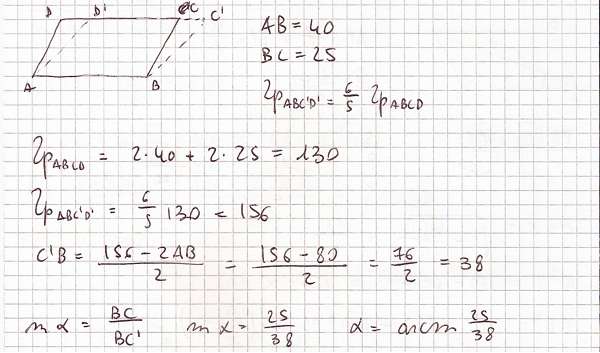 D D' C C'
A B
AB = 40
BC = 25
2p ABC'D' = 6/5 2p ABCD
2p ABCD = 2·40 + 2·25 = 130
2p ABC'D' = 6/5 130 = 156
C'B = (156 - 2AB)/2 = (156 - 80)/2 = 76/2 = 38
m α = BC/BC' m α = 25/38 α = arcm 25/38